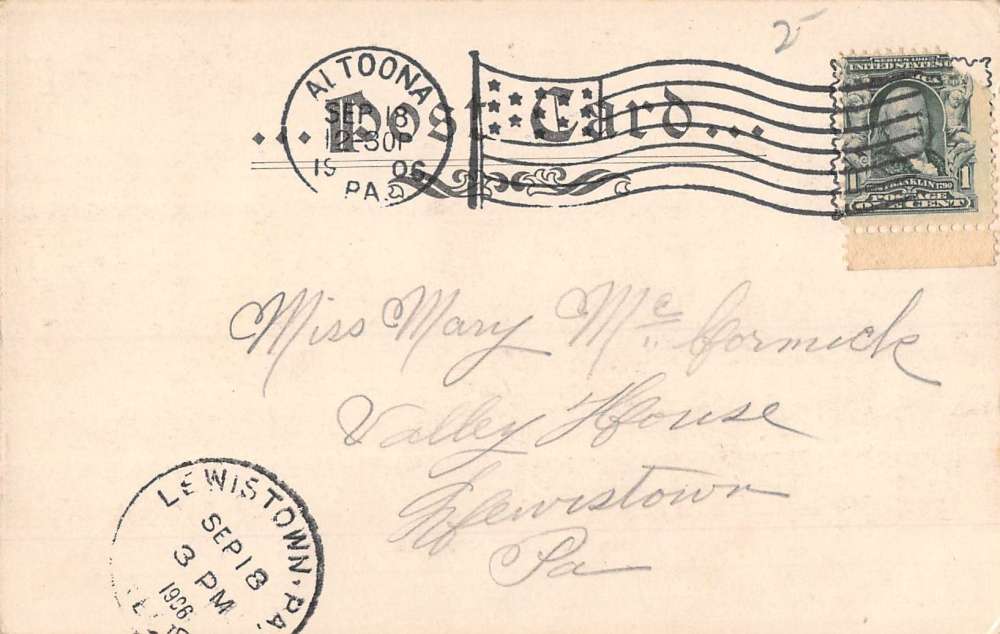 2
ALTOONA
SEP 18
12-30P
19 06
PA.
...Post Card...
UNITED STATES
1 1
FRANKLIN 1790
POSTAGE
ONE CENT
Miss Mary Mc Cormick
Valley House
Lewistown
Pa
LEWISTOWN. PA
SEP 18
3 PM
1906